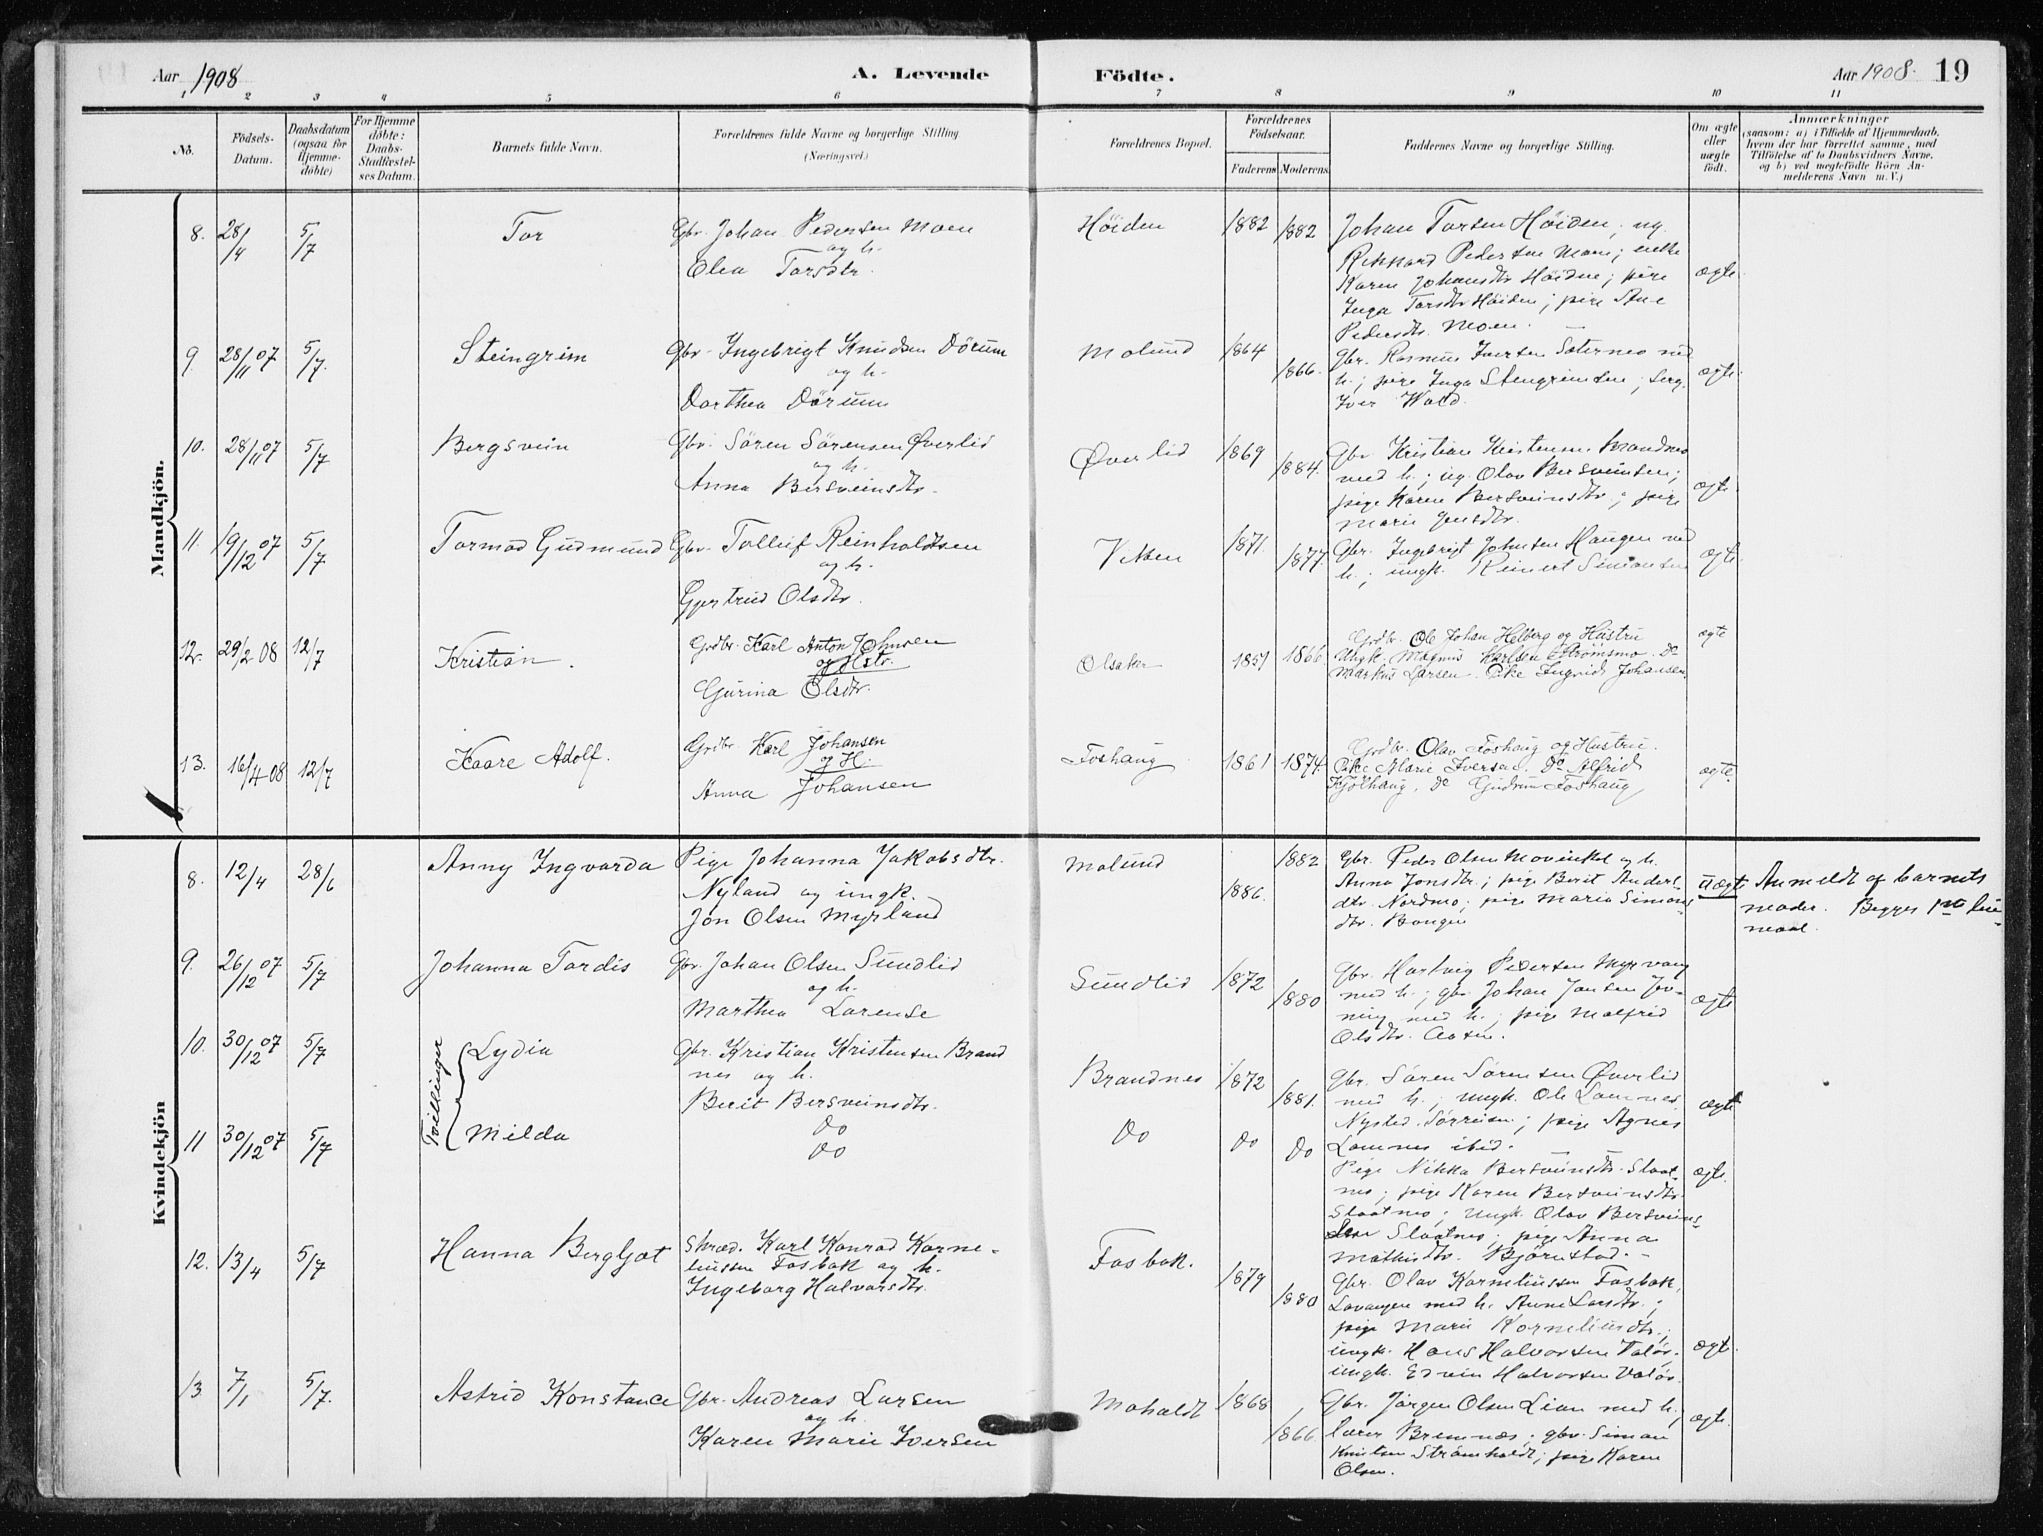 Aar 1908
A. Levende
Födte.
Aar 1908. 19
1 2 3 4 5 6 7 8 9 10 11
No.
Födsels-
Datum.
Daabsdatum
(ogsaa for
Hjemme-
döbte)
For Hjemme
döbte:
Daabs-
Stadfæstel-
ses Datum.
Barnets fulde Navn.
Forældrenes fulde Navne og borgerlige Stilling
(Næringsvei.)
Forældrenes Bopæl.
Forældrenes
Födselsaar.
Faderens Moderens
Faddernes Navne og borgerlige Stilling.
Om ægte
eller
uægte
födt.
Anmærkninger
(saasom: a) i Tilfælde af Hjemmedaab,
hvem der har forrettet samme, med
Tilföielse af to Daabsvidners Navne,
og b) ved uægtefödte Börn An-
melderens Navn m. V.)
Mandkjön.
8. 28/4 5/7 Tor
Gbr. Johan Pedersen Moen
og h.
Olea Torsdtr.
Höiden 1882 1882
Johan Torsen Höiden, ug.
Rikkard Pedersen Moen; enke
Karen Johansdtr Höiden; pige
Inga Torsdtr Höiden; pige Ane
Pedersdtr. Moen.
ægte
9. 28/11 07 5/7. Steingrim
Gbr. Ingebrigt Knudsen Dörum
og h.
Dorthea Dörum
Molund 1864 1866.
Gbr. Rasmus Iversen Sæternes med
h.; pige Inga Stengrimsen; serg.
Iver Wold.
ægte.
10. 28/11 07 5/7 Bergsvein
Gbr. Sören Sörensen Øverlid
og h.
Anna Bersveinsdtr.
Øverlid 1869 1884.
Gbr. Kristian Kristensen Brandnes
med h.; ug. Olav Bersveinsen;
pige Karen Bersveinsdtr; pige
Marie Jensdtr.
ægte
11. 19/12 07 5/7 Tormod Gudmund
Gbr. Tolleif Reinholdtsen
og h.
Gjertrud Olsdtr.
Viken 1871. 1877.
Gbr. Ingebrigt Johnsen Haugen med
h.; ungk. Reinert Simonsen
ægte.
12. 29/2 08 12/7 Kristian.
Grdbr. Karl Anton Johnsen
og Hstr.
Gurina Olsdtr.
Olsaker 1857 1866
Grdbr. Ole Johan Helberg og Hustru
Ungk. Magnus Karlsen Strömsmo. Do
Markus Larsen. Pike Ingrid Johansen.
ægte
13. 16/4 08 12/7 Kaare Adolf.
Grdbr. Karl Johansen
og H.
Anna Johansen
Foshaug 1861 1874.
Grdbr. Olav Foshaug og Hustru.
Pike Marie Iversen, Do Alfrid
Kjölhaug, Do Gudrun Foshaug
ægte.
Kvindekjön
8. 12/4 28/6 Anny Ingvarda
Pige Johanna Jakobsdtr.
Nyland og ungk.
Jon Olsen Myrland
Molund 1886. 1882
Gbr. Peder Olsen Movinkel og h.
Anna Jonsdtr.; pige Berit Anders-
dtr. Nordmo; pige Maria Simons-
dtr. Bongen
uægte
Anmeldt af barnets
moder. Begges 1ste leie-
maal.
9. 26/12 07 5/7 Johanna Tordis
Gbr. Johan Olsen Sundlid
og h.
Marthea Larense
Sundlid 1872 1880
Gbr. Hartvig Pedersen Myrvang
med h.; gbr. Johan Jonsen Jöv-
ning med h.; pige Malfrid
Olsdtr. Aasen.
ægte
Tvillinger
10. 30/12 07 5/7 Lydia
Gbr. Kristian Kristensen Brand
nes og h.
Berit Bersveinsdtr.
Brandnes 1872 1881.
Gbr. Sören Sörensen Øverlid
med h.; ungk. Ole Lomnes
Nysted, Sörreisen; pige Agnes
Lomnes ibid.
ægte
11 30/12 07 5/7 Milda
Do
Do
Do Do Do
Pige Nikka Bersveinsdtr. Slaat-
nes; pige Karen Bersveinsdtr.
Slaatnes; ungk. Olav Bersveins-
sen Slaatnes; pige Anna
Mathisdtr. Björnstad.
ægte.
12. 13/4 5/7 Hanna Bergljot
Skræd. Karl Konrad Korne-
liussen Fosbak og h.
Ingeborg Halvorsdtr.
Fosbak. 1879 1880
Gbr. Olav Korneliussen Fosbak,
Lavangen med h. Anne Larsdtr.;
pige Marie Korneliusdtr.;
ungk. Hans Halvorsen Valör;
ungk. Edvin Halvorsen Valör.
ægte.
13 7/1 5/7. Astrid Konstance
Gbr. Andreas Larsen
og h.
Karen Marie Iversen
Moholdt 1868 1866.
Gbr. Jörgen Olsen Lien med h.;
lærer Bremnes; gbr. Simon
Knutsen Strömholdt; pige Karen
Olsen.
ægte.